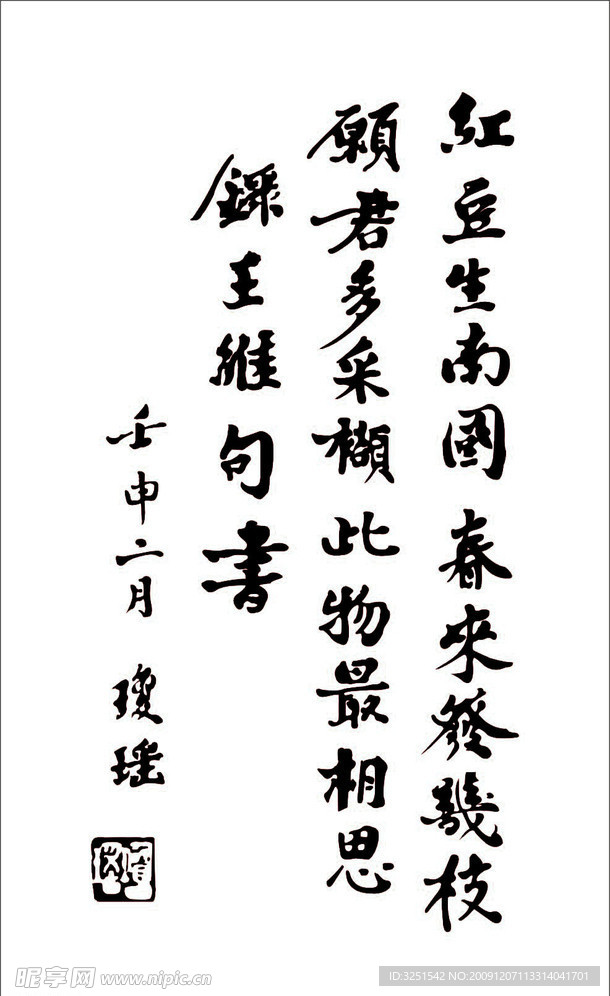 紅豆生南國春來發幾枝
願君多采擷此物最相思
錄王維句書
壬申二月 瓊瑤
昵享网 www.nipic.cn
ID:3251542 NO:20091207113314041701